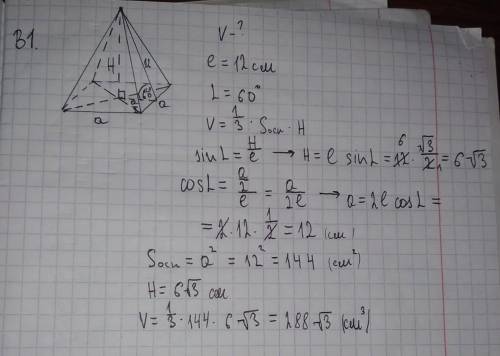 B1.
H
a
a
60°
V - ?
l = 12 см
L = 60°
V = 1/3 · Sосн · H
sin L = H/l → H = l sin L = 12 · √3/2 = 6√3
cos L = (a/2)/l = a/2l → a = 2l cos L =
= 2 · 12 · 1/2 = 12 (см)
Sосн = a² = 12² = 144 (см²)
H = 6√3 см
V = 1/3 · 144 · 6√3 = 288√3 (см³)